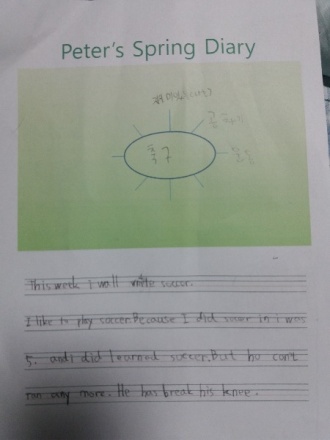 Peter's Spring Diary
축구
운동
This week I will write soccer.
I like to play soccer. Because I did soccer in i was
5. and i did learned soccer. But he can't
run any more. He has break his knee.